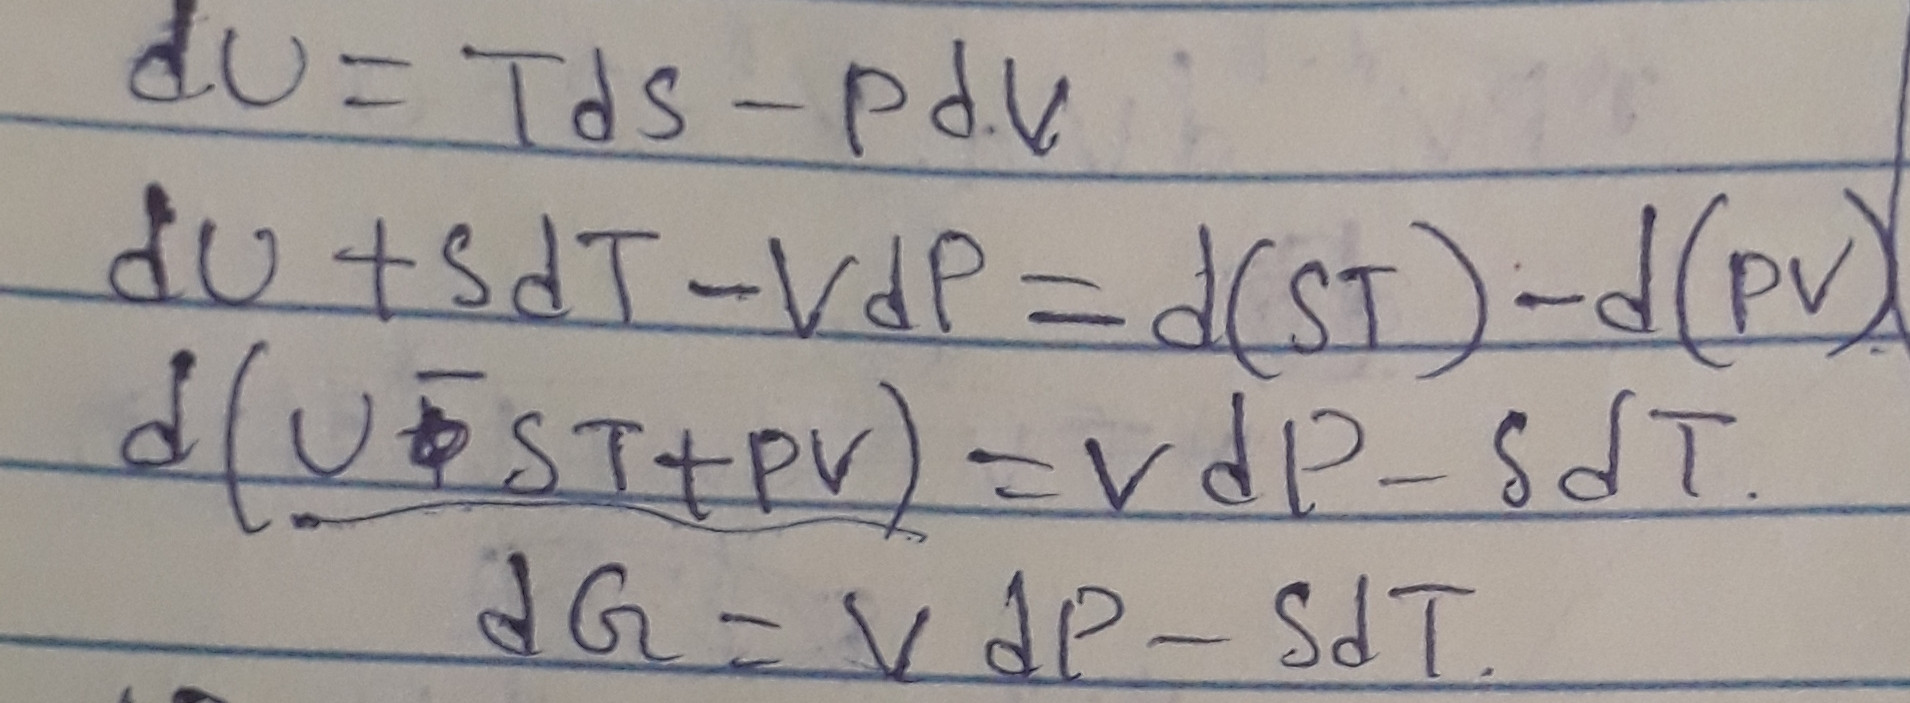 dU = Tds - PdV
dU + SdT - VdP = d(ST) - d(PV)
d(U - ST + PV) = VdP - SdT.
dG = VdP - SdT.